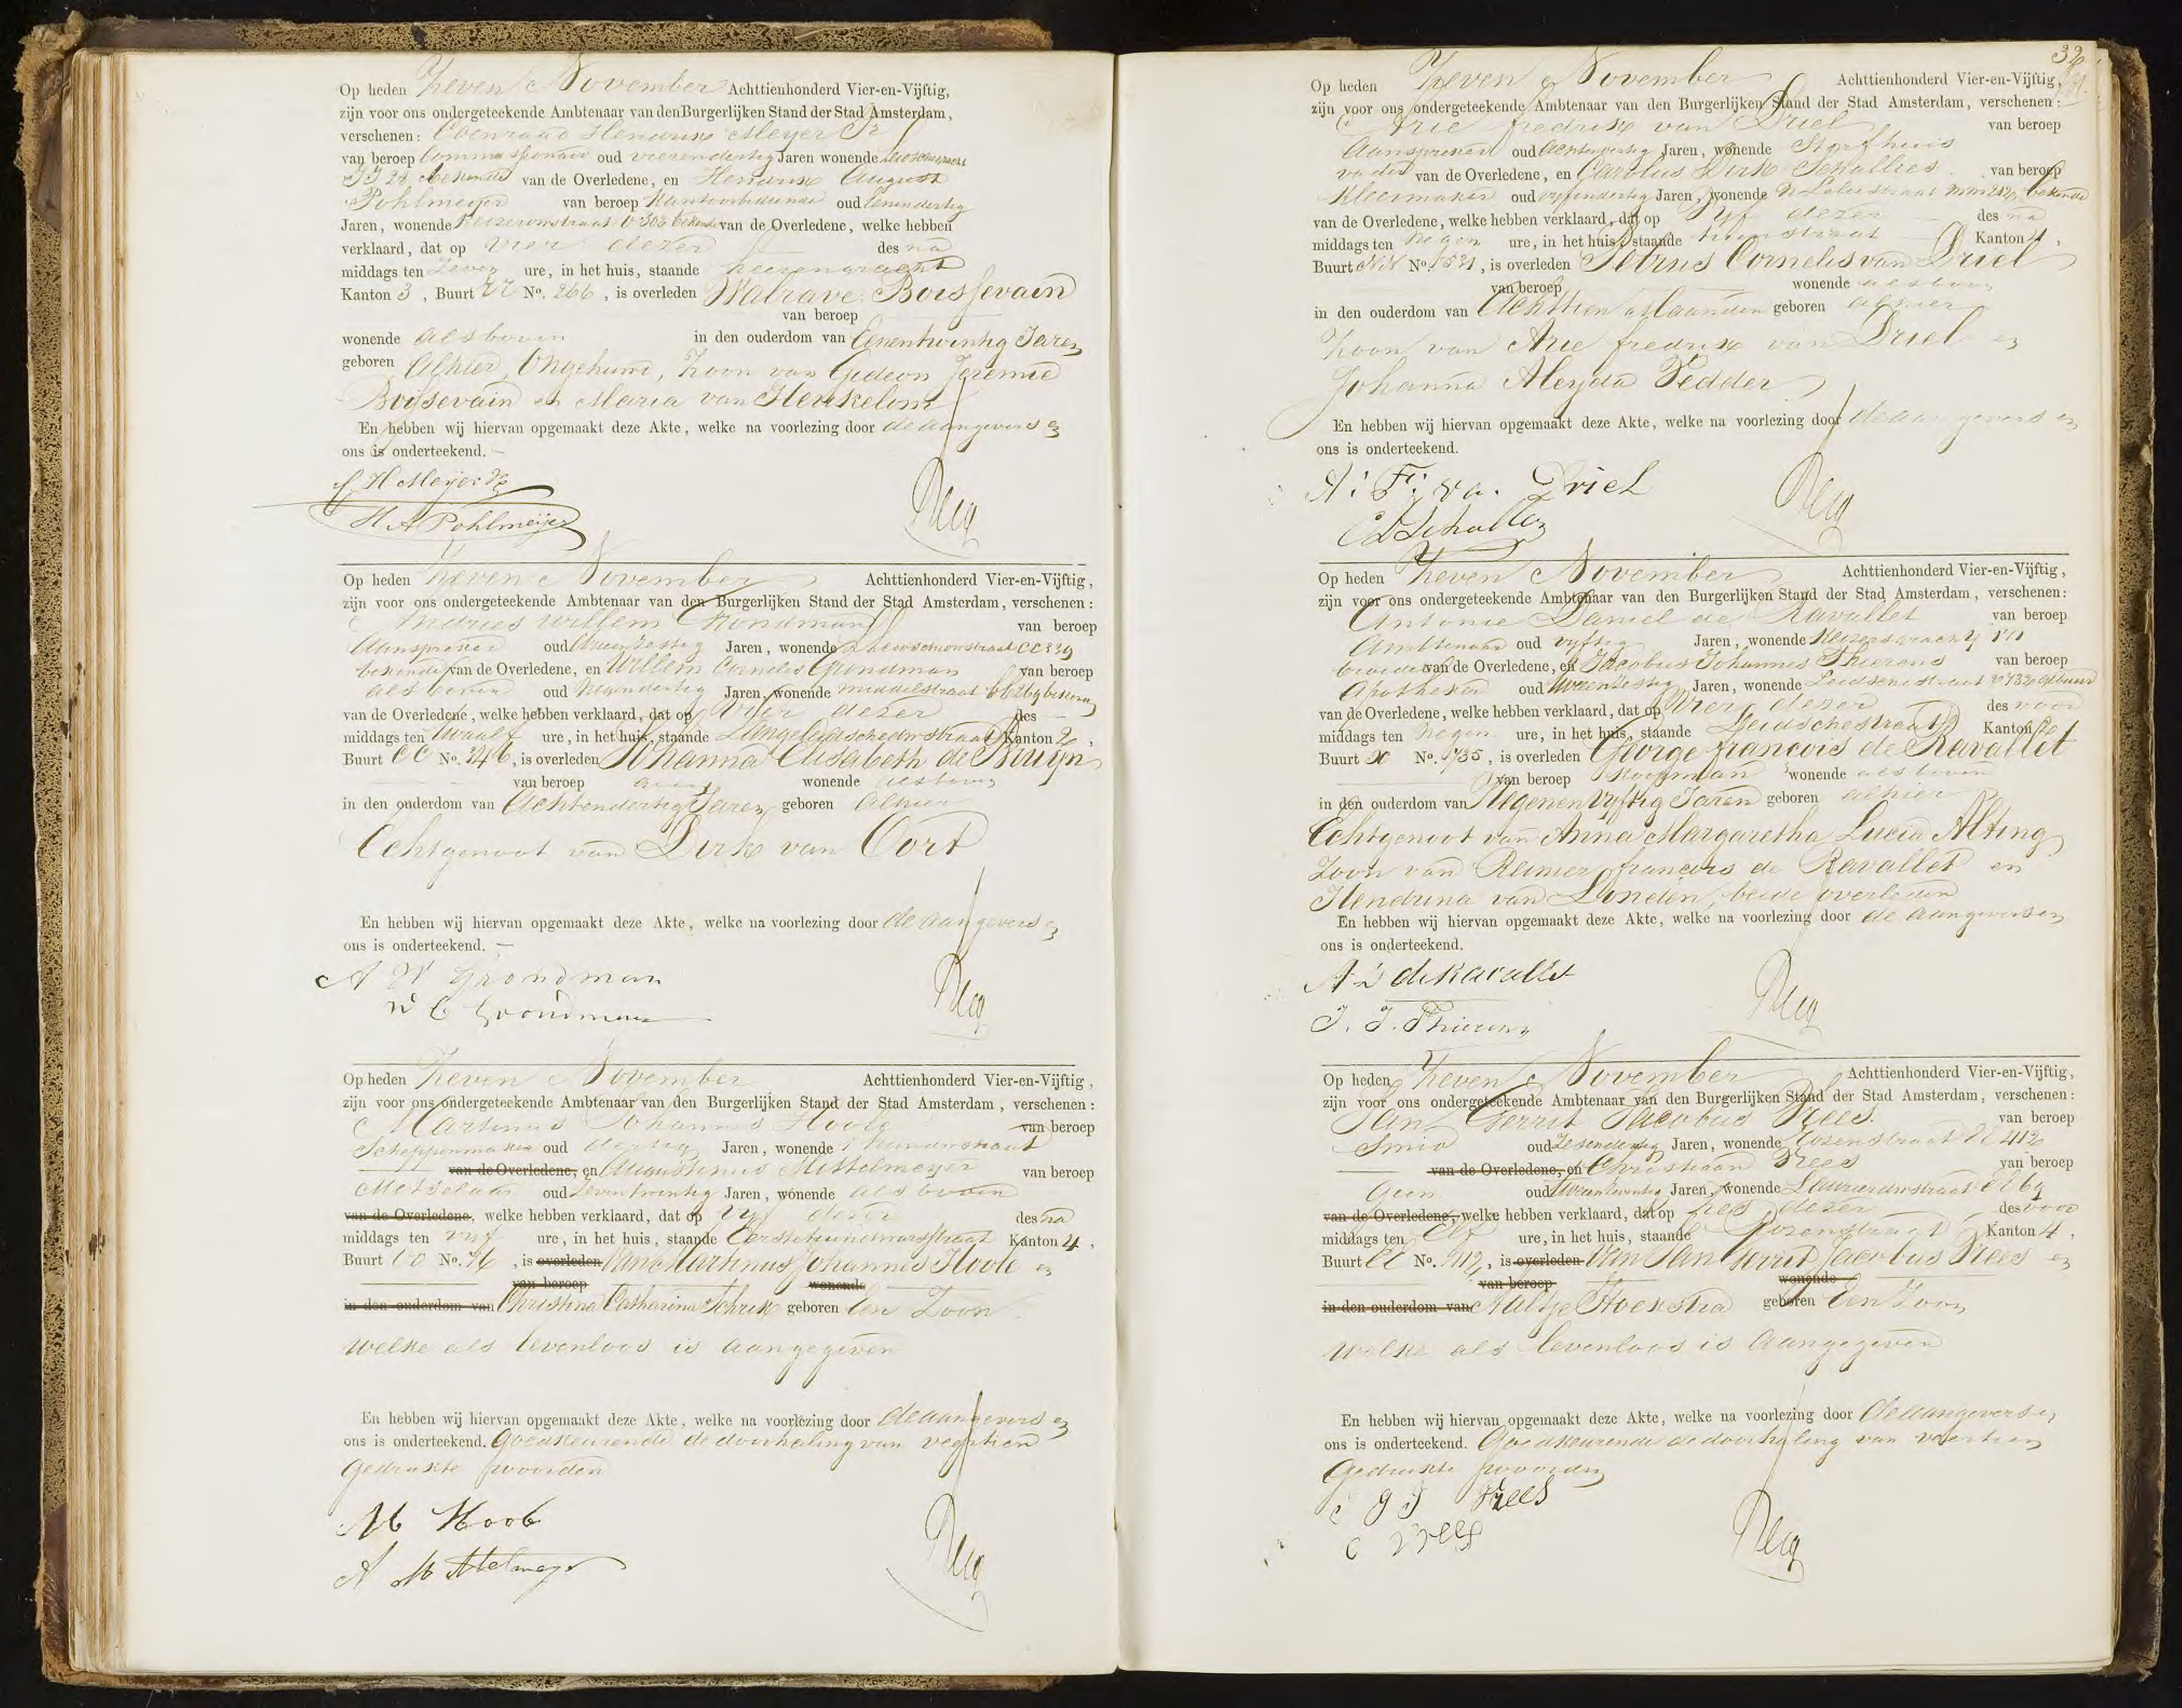 Op heden Zeven November Achttienhonderd Vier-en-Vijftig,
zijn voor ons ondergeteekende Ambtenaar van den Burgerlijken Stand der Stad Amsterdam,
verschenen: Coenraad Hendrik Meyer Jr
van beroep Commissionair oud vierendertig Jaren wonende
JJ 28 bekende van de Overledene, en Hendrik August
Pohlmeyer van beroep Kantoorbediende oud eenendertig
Jaren, wonende bekende van de Overledene, welke hebben
verklaard, dat op vier dezer des na
middags ten zeven ure, in het huis, staande heerengracht
Kanton 3, Buurt No. 266, is overleden Walrave Boissevain
van beroep
wonende als boven in den ouderdom van Eenentwintig Jaren
geboren Alhier, Ongehuwd, Zoon van Gedeon Jeremie
Boissevain en Maria van Heukelom
En hebben wij hiervan opgemaakt deze Akte, welke na voorlezing door de aangevers en
ons is onderteekend. —
C H Meijer Jr
H A Pohlmeijer
Op heden Zeven November Achttienhonderd Vier-en-Vijftig,
zijn voor ons ondergeteekende Ambtenaar van den Burgerlijken Stand der Stad Amsterdam, verschenen:
Andries Willem Grondman van beroep
Aanspreker oud Jaren, wonende CC 339
bekende van de Overledene, en Willem Cornelis Grondman van beroep
als boven oud negendertig Jaren, wonende middelstraat bekenden
van de Overledene, welke hebben verklaard, dat op Vier dezer des
middags ten twaalf ure, in het huis, staande Langeleidschedwstraat Kanton 2,
Buurt CC No. 346, is overleden Johanna Elisabeth de Bruijn
van beroep geen wonende als boven
in den ouderdom van Achtendertig Jaren geboren Alhier
Echtgenoot van Dirk van Oort
En hebben wij hiervan opgemaakt deze Akte, welke na voorlezing door de aangevers en
ons is onderteekend. —
A W Grondman
W C Grondman
Op heden Zeven November Achttienhonderd Vier-en-Vijftig,
zijn voor ons ondergeteekende Ambtenaar van den Burgerlijken Stand der Stad Amsterdam, verschenen:
Martinus Johannes Hoole van beroep
Schoppenmaker oud dertig Jaren, wonende
van de Overledene, en Augustinus Mittelmeyer van beroep
Metselaar oud zevenentwintig Jaren, wonende als boven
van de Overledene, welke hebben verklaard, dat op Vyf dezer des na
middags ten vyf ure, in het huis, staande Kanton 4,
Buurt OO No. 96, is overleden Van Martinus Johannes Hoole en
van beroep wonende
in den ouderdom van Christina Catharina Schrik geboren Een Zoon
welke als levenloos is aangegeven
En hebben wij hiervan opgemaakt deze Akte, welke na voorlezing door de aangevers en
ons is onderteekend. Goedkeurende de doorhaling van veertien
Gedrukte woorden
A Mittelmeyer
32
Op heden Zeven November Achttienhonderd Vier-en-Vijftig,
zijn voor ons ondergeteekende Ambtenaar van den Burgerlijken Stand der Stad Amsterdam, verschenen:
Arie fredrik van Driel van beroep
Aanspreker oud Achtenveertig Jaren, wonende
vader van de Overledene, en Carolus Dirk van beroep
Kleermaker oud vyfendertig Jaren, wonende bekende
van de Overledene, welke hebben verklaard, dat op Vyf dezer des na
middags ten Negen ure, in het huis, staande Tuinstraat Kanton 4,
Buurt NN No. 521, is overleden Petrus Cornelis van Driel
van beroep wonende als boven
in den ouderdom van Achttien Maanden geboren alhier
Zoon van Arie fredrik van Driel en
Johanna Aleyda Vedder
En hebben wij hiervan opgemaakt deze Akte, welke na voorlezing door de aangevers en
ons is onderteekend.
A: F: va. Driel
Op heden Zeven November Achttienhonderd Vier-en-Vijftig,
zijn voor ons ondergeteekende Ambtenaar van den Burgerlijken Stand der Stad Amsterdam, verschenen:
Antonie Daniel de Ravallet van beroep
Ambtenaar oud vyftig Jaren, wonende Keizersgracht
broeder van de Overledene, en Jacobus Johannes Thierens van beroep
Apotheker oud tweenzestig Jaren, wonende Leidschestraat
van de Overledene, welke hebben verklaard, dat op Vier dezer des voor
middags ten negen ure, in het huis, staande Leidschestraat Kanton
Buurt No. 735, is overleden George francois de Ravallet
van beroep Koopman wonende als boven
in den ouderdom van Negenenvyftig Jaren geboren alhier
Echtgenoot van Anna Margaretha Lucia Alting
Zoon van Reinier francois de Ravallet en
Hendrina van Londen, beide overleden
En hebben wij hiervan opgemaakt deze Akte, welke na voorlezing door de aangevers en
ons is onderteekend.
A D de Ravallet
J. J. Thierens
Op heden Zeven November Achttienhonderd Vier-en-Vijftig,
zijn voor ons ondergeteekende Ambtenaar van den Burgerlijken Stand der Stad Amsterdam, verschenen:
Jan Gerrit Jacobus Vrees van beroep
Smid oud Zesendertig Jaren, wonende Rozenstraat 412
van de Overledene, en Christiaan Vrees van beroep
Geen oud Jaren, wonende Laurierdwstraat
van de Overledene, welke hebben verklaard, dat op dezer des voor
middags ten Elf ure, in het huis, staande Rozenstraat Kanton 4,
Buurt No. 412, is overleden Van Jan Gerrit Jacobus Vrees en
van beroep wonende
in den ouderdom van Aaltje Hoekstra geboren Een Zoon
welke als levenloos is aangegeven
En hebben wij hiervan opgemaakt deze Akte, welke na voorlezing door de aangevers en
ons is onderteekend. Goedkeurende de doorhaling van veertien
Gedrukte woorden
G J Vrees
C Vrees